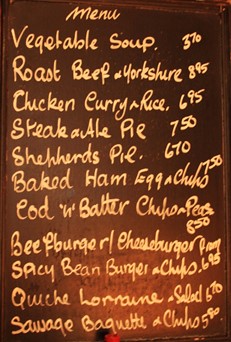 Menu
Vegetable Soup. 370
Roast Beef & Yorkshire 895
Chicken Curry & Rice. 695
Steak & Ale Pie 750
Shepherds Pie. 670
Baked Ham Egg & Chips 750
Cod 'n' Batter Chips & Peas
850
Beefburger / Cheeseburger From
Spicy Bean Burger & Chips. 695
Quiche Lorraine & Salad 670
Sausage Baguette & Chips 580